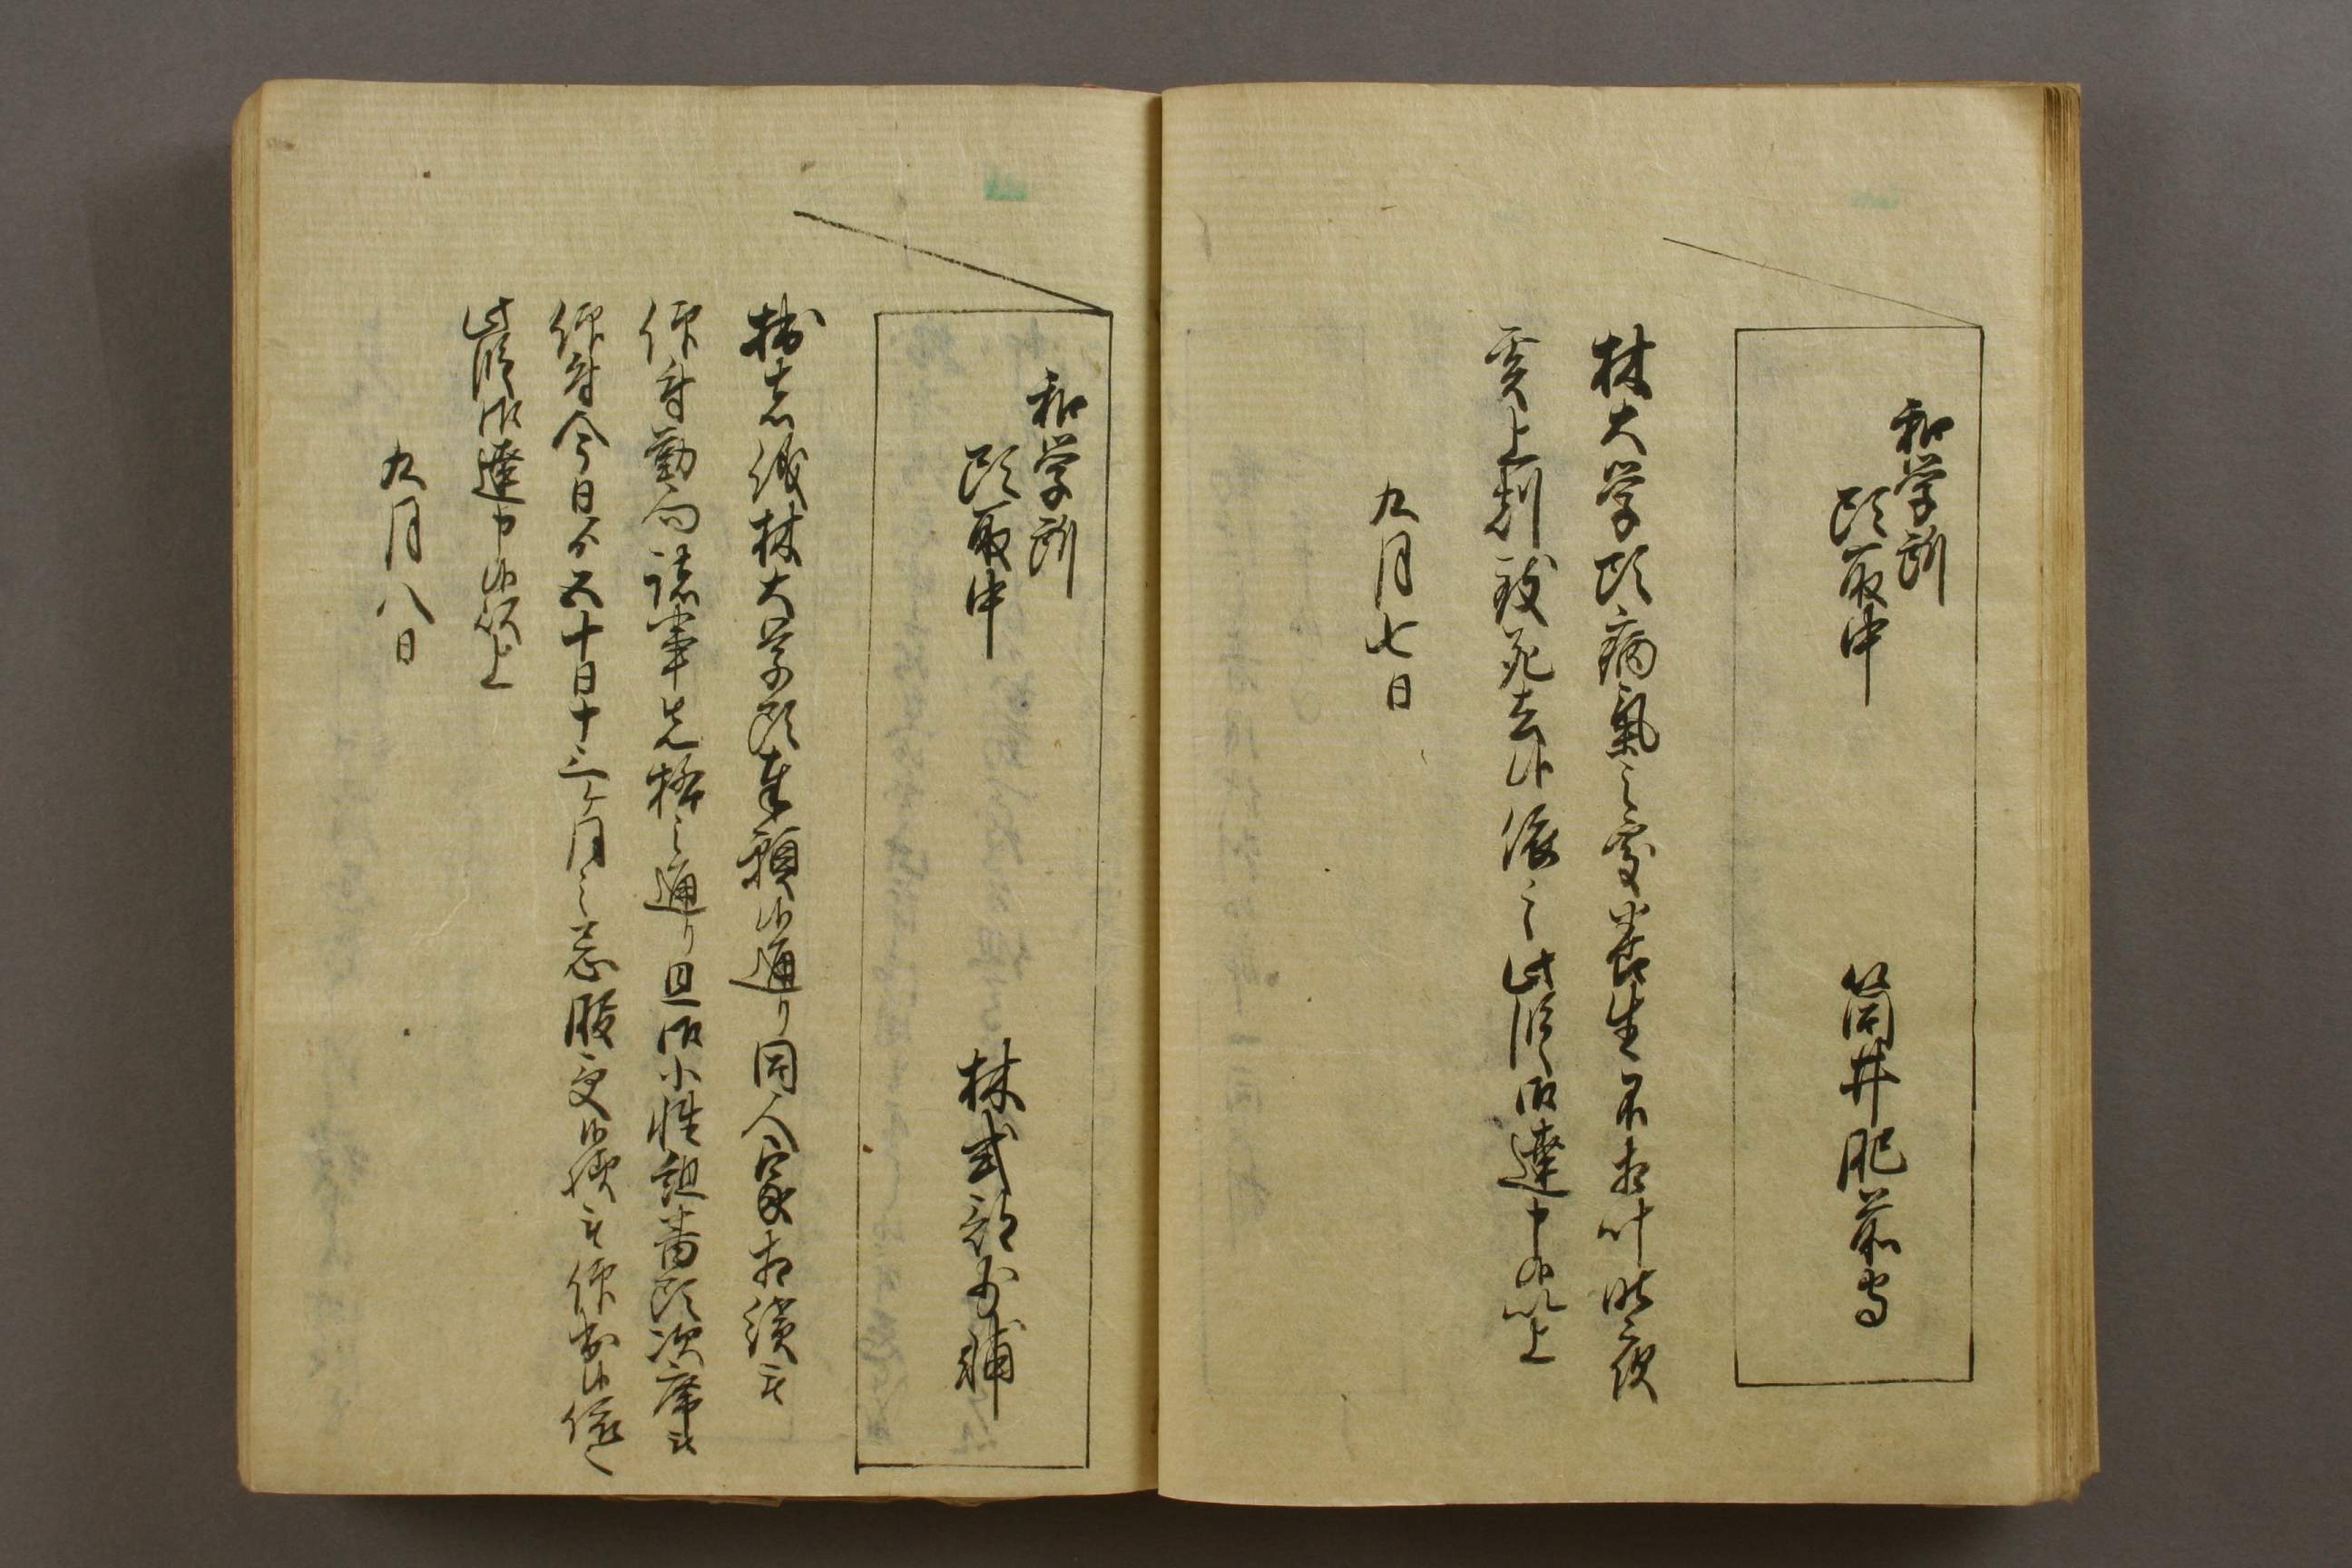 和学所
頭取中
筒井肥前守
林大学頭病氣之処養生不相叶昨夜
亥上刻致死去候依之此段御達申候以上
九月七日
和学所
頭取中
林式部少輔
拙者儀林大学頭奉願候通り同人家相續被
仰付勤向諸事先格之通り且御小性組番頭次席被
仰付今日より五十日十三ヶ月之忌服受候様被仰出候依之
此段御達申候以上
九月八日